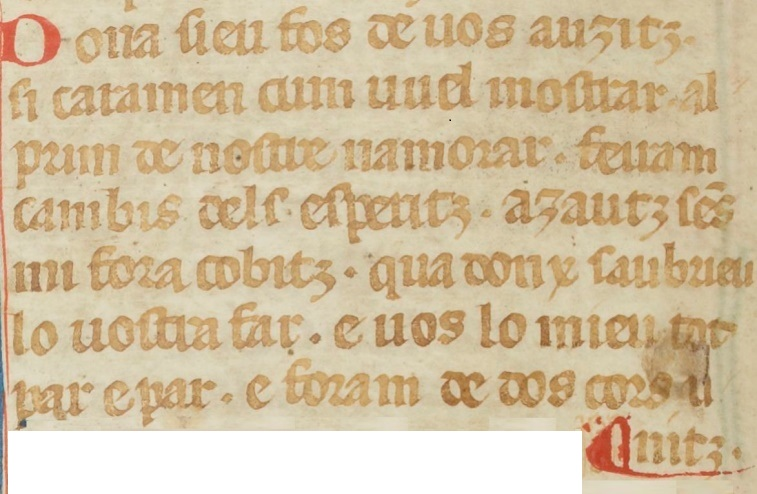 Dona sieu fos de uos auzitz.
si caramen cum uuel mostrar. al
prim de nostre namorar. feuam
cambis dels esperitz. azautz sēs
mi fora cobitz. qua donx saubrieu
lo uostra far. e uos lo mieu tot
par e par. e foram de dos cors u
nitz.